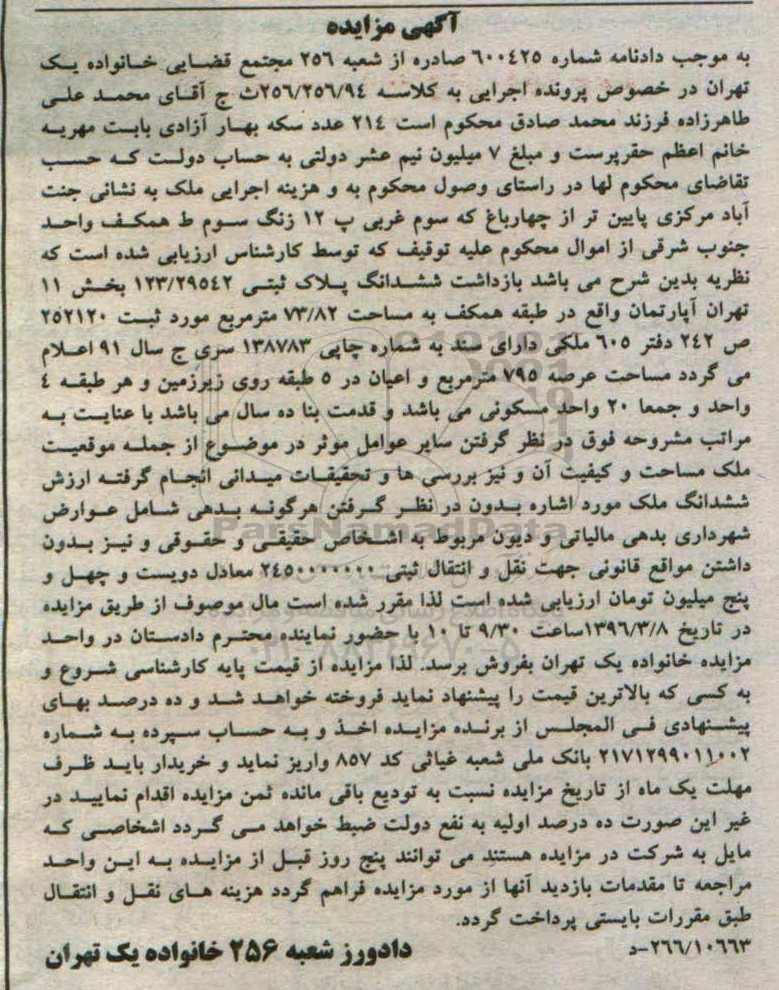 آگهی مزایده
به موجب دادنامه شماره ۶۰۰۴۲۵ صادره از شعبه ۲۵۶ مجتمع قضایی خانواده یک
تهران در خصوص پرونده اجرایی به کلاسه ۲۵۶/۲۵۶/۹۴ث ج آقای محمد علی
طاهرزاده فرزند محمد صادق محکوم است ۲۱۴ عدد سکه بهار آزادی بابت مهریه
خانم اعظم حقرپرست و مبلغ ۷ میلیون نیم عشر دولتی به حساب دولت که حسب
تقاضای محکوم لها در راستای وصول محکوم به و هزینه اجرایی ملک به نشانی جنت
آباد مرکزی پایین تر از چهارباغ که سوم غربی پ ۱۲ زنگ سوم ط همکف واحد
جنوب شرقی از اموال محکوم علیه توقیف که توسط کارشناس ارزیابی شده است که
نظریه بدین شرح می باشد بازداشت ششدانگ پلاک ثبتی ۱۲۳/۲۹۵۴۲ بخش ۱۱
تهران آپارتمان واقع در طبقه همکف به مساحت ۷۳/۸۲ مترمربع مورد ثبت ۲۵۲۱۲۰
ص ۲۴۲ دفتر ۶۰۵ ملکی دارای سند به شماره چاپی ۱۳۸۷۸۳ سری ج سال ۹۱ اعلام
می گردد مساحت عرصه ۷۹۵ مترمربع و اعیان در ۵ طبقه روی زیرزمین و هر طبقه ۴
واحد و جمعا ۲۰ واحد مسکونی می باشد و قدمت بنا ده سال می باشد با عنایت به
مراتب مشروحه فوق در نظر گرفتن سایر عوامل موثر در موضوع از جمله موقعیت
ملک مساحت و کیفیت آن و نیز بررسی ها و تحقیقات میدانی انجام گرفته ارزش
ششدانگ ملک مورد اشاره بدون در نظر گرفتن هرگونه بدهی شامل عوارض
شهرداری بدهی مالیاتی و دیون مربوط به اشخاص حقیقی و حقوقی و نیز بدون
داشتن مواقع قانونی جهت نقل و انتقال ثبتی ۲۴۵۰۰۰۰۰۰۰ معادل دویست و چهل و
پنج میلیون تومان ارزیابی شده است لذا مقرر شده است مال موصوف از طریق مزایده
در تاریخ ۱۳۹۶/۳/۸ساعت ۹/۳۰ تا ۱۰ با حضور نماینده محترم دادستان در واحد
مزایده خانواده یک تهران بفروش برسد. لذا مزایده از قیمت پایه کارشناسی شروع و
به کسی که بالاترین قیمت را پیشنهاد نماید فروخته خواهد شد و ده درصد بهای
پیشنهادی فی المجلس از برنده مزایده اخذ و به حساب سپرده به شماره
۲۱۷۱۲۹۹۰۱۱۰۰۲ بانک ملی شعبه غیاثی کد ۸۵۷ واریز نماید و خریدار باید ظرف
مهلت یک ماه از تاریخ مزایده نسبت به تودیع باقی مانده ثمن مزایده اقدام نمایید در
غیر این صورت ده درصد اولیه به نفع دولت ضبط خواهد می گردد اشخاصی که
مایل به شرکت در مزایده هستند می توانند پنج روز قبل از مزایده به این واحد
مراجعه تا مقدمات بازدید آنها از مورد مزایده فراهم گردد هزینه های نقل و انتقال
طبق مقررات بایستی پرداخت گردد.
۲۶۶/۱۰۶۶۳-د
دادورز شعبه ۲۵۶ خانواده یک تهران
ParsNamadData